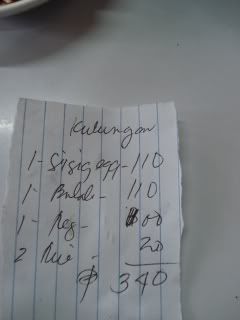 Kulungan
1- Sisig egg- 110
1- Bulalo- 110
1- Reg- 100
2 Rice - 20
₱ 340